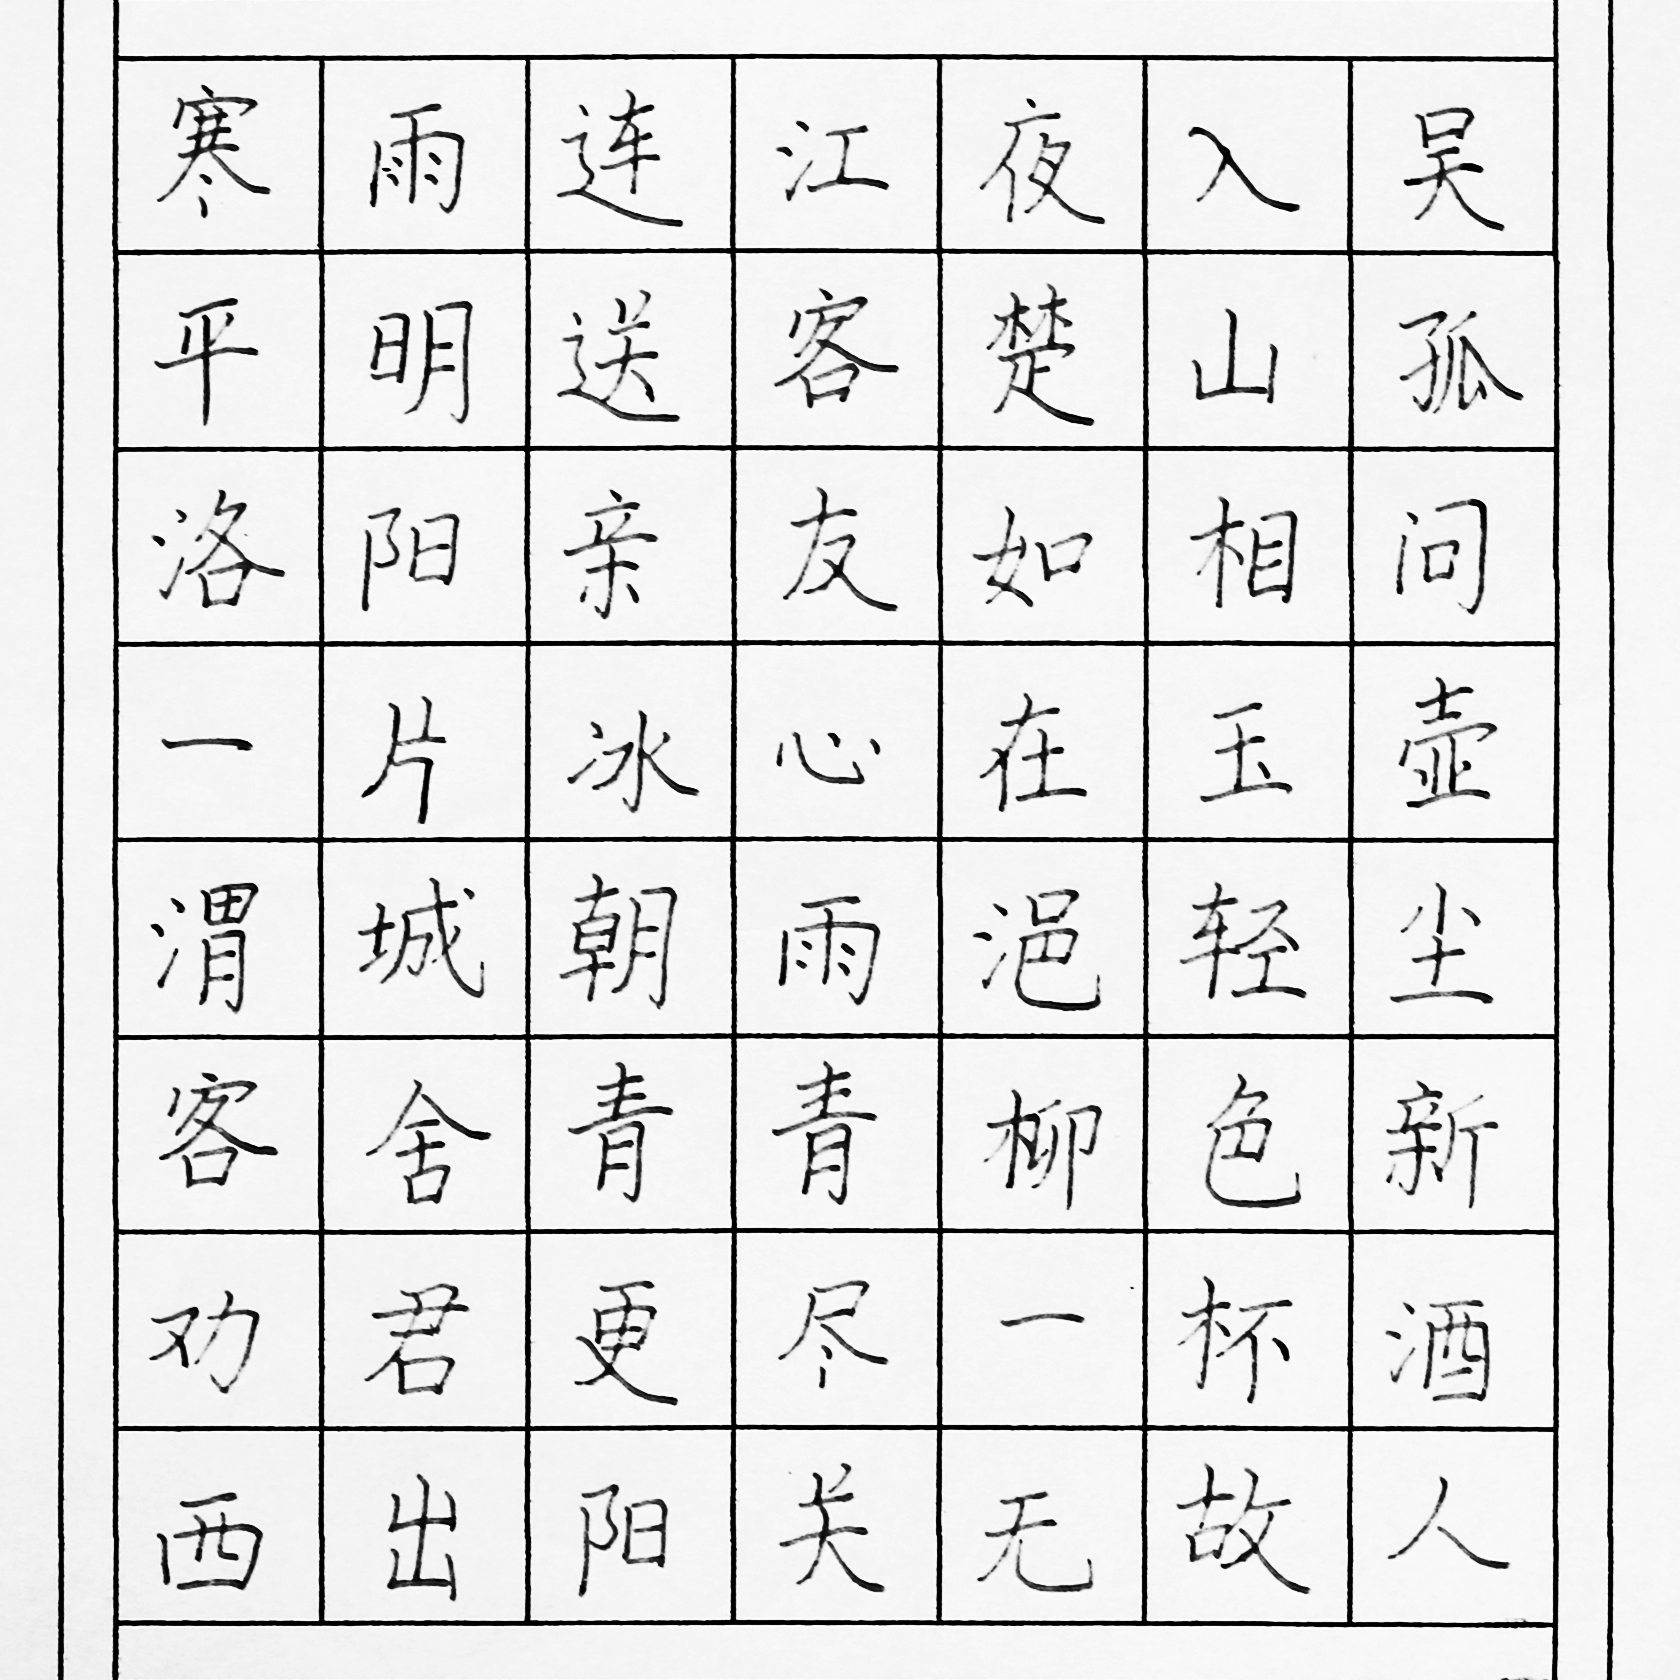 寒雨连江夜入吴
平明送客楚山孤
洛阳亲友如相问
一片冰心在玉壶
渭城朝雨浥轻尘
客舍青青柳色新
劝君更尽一杯酒
西出阳关无故人